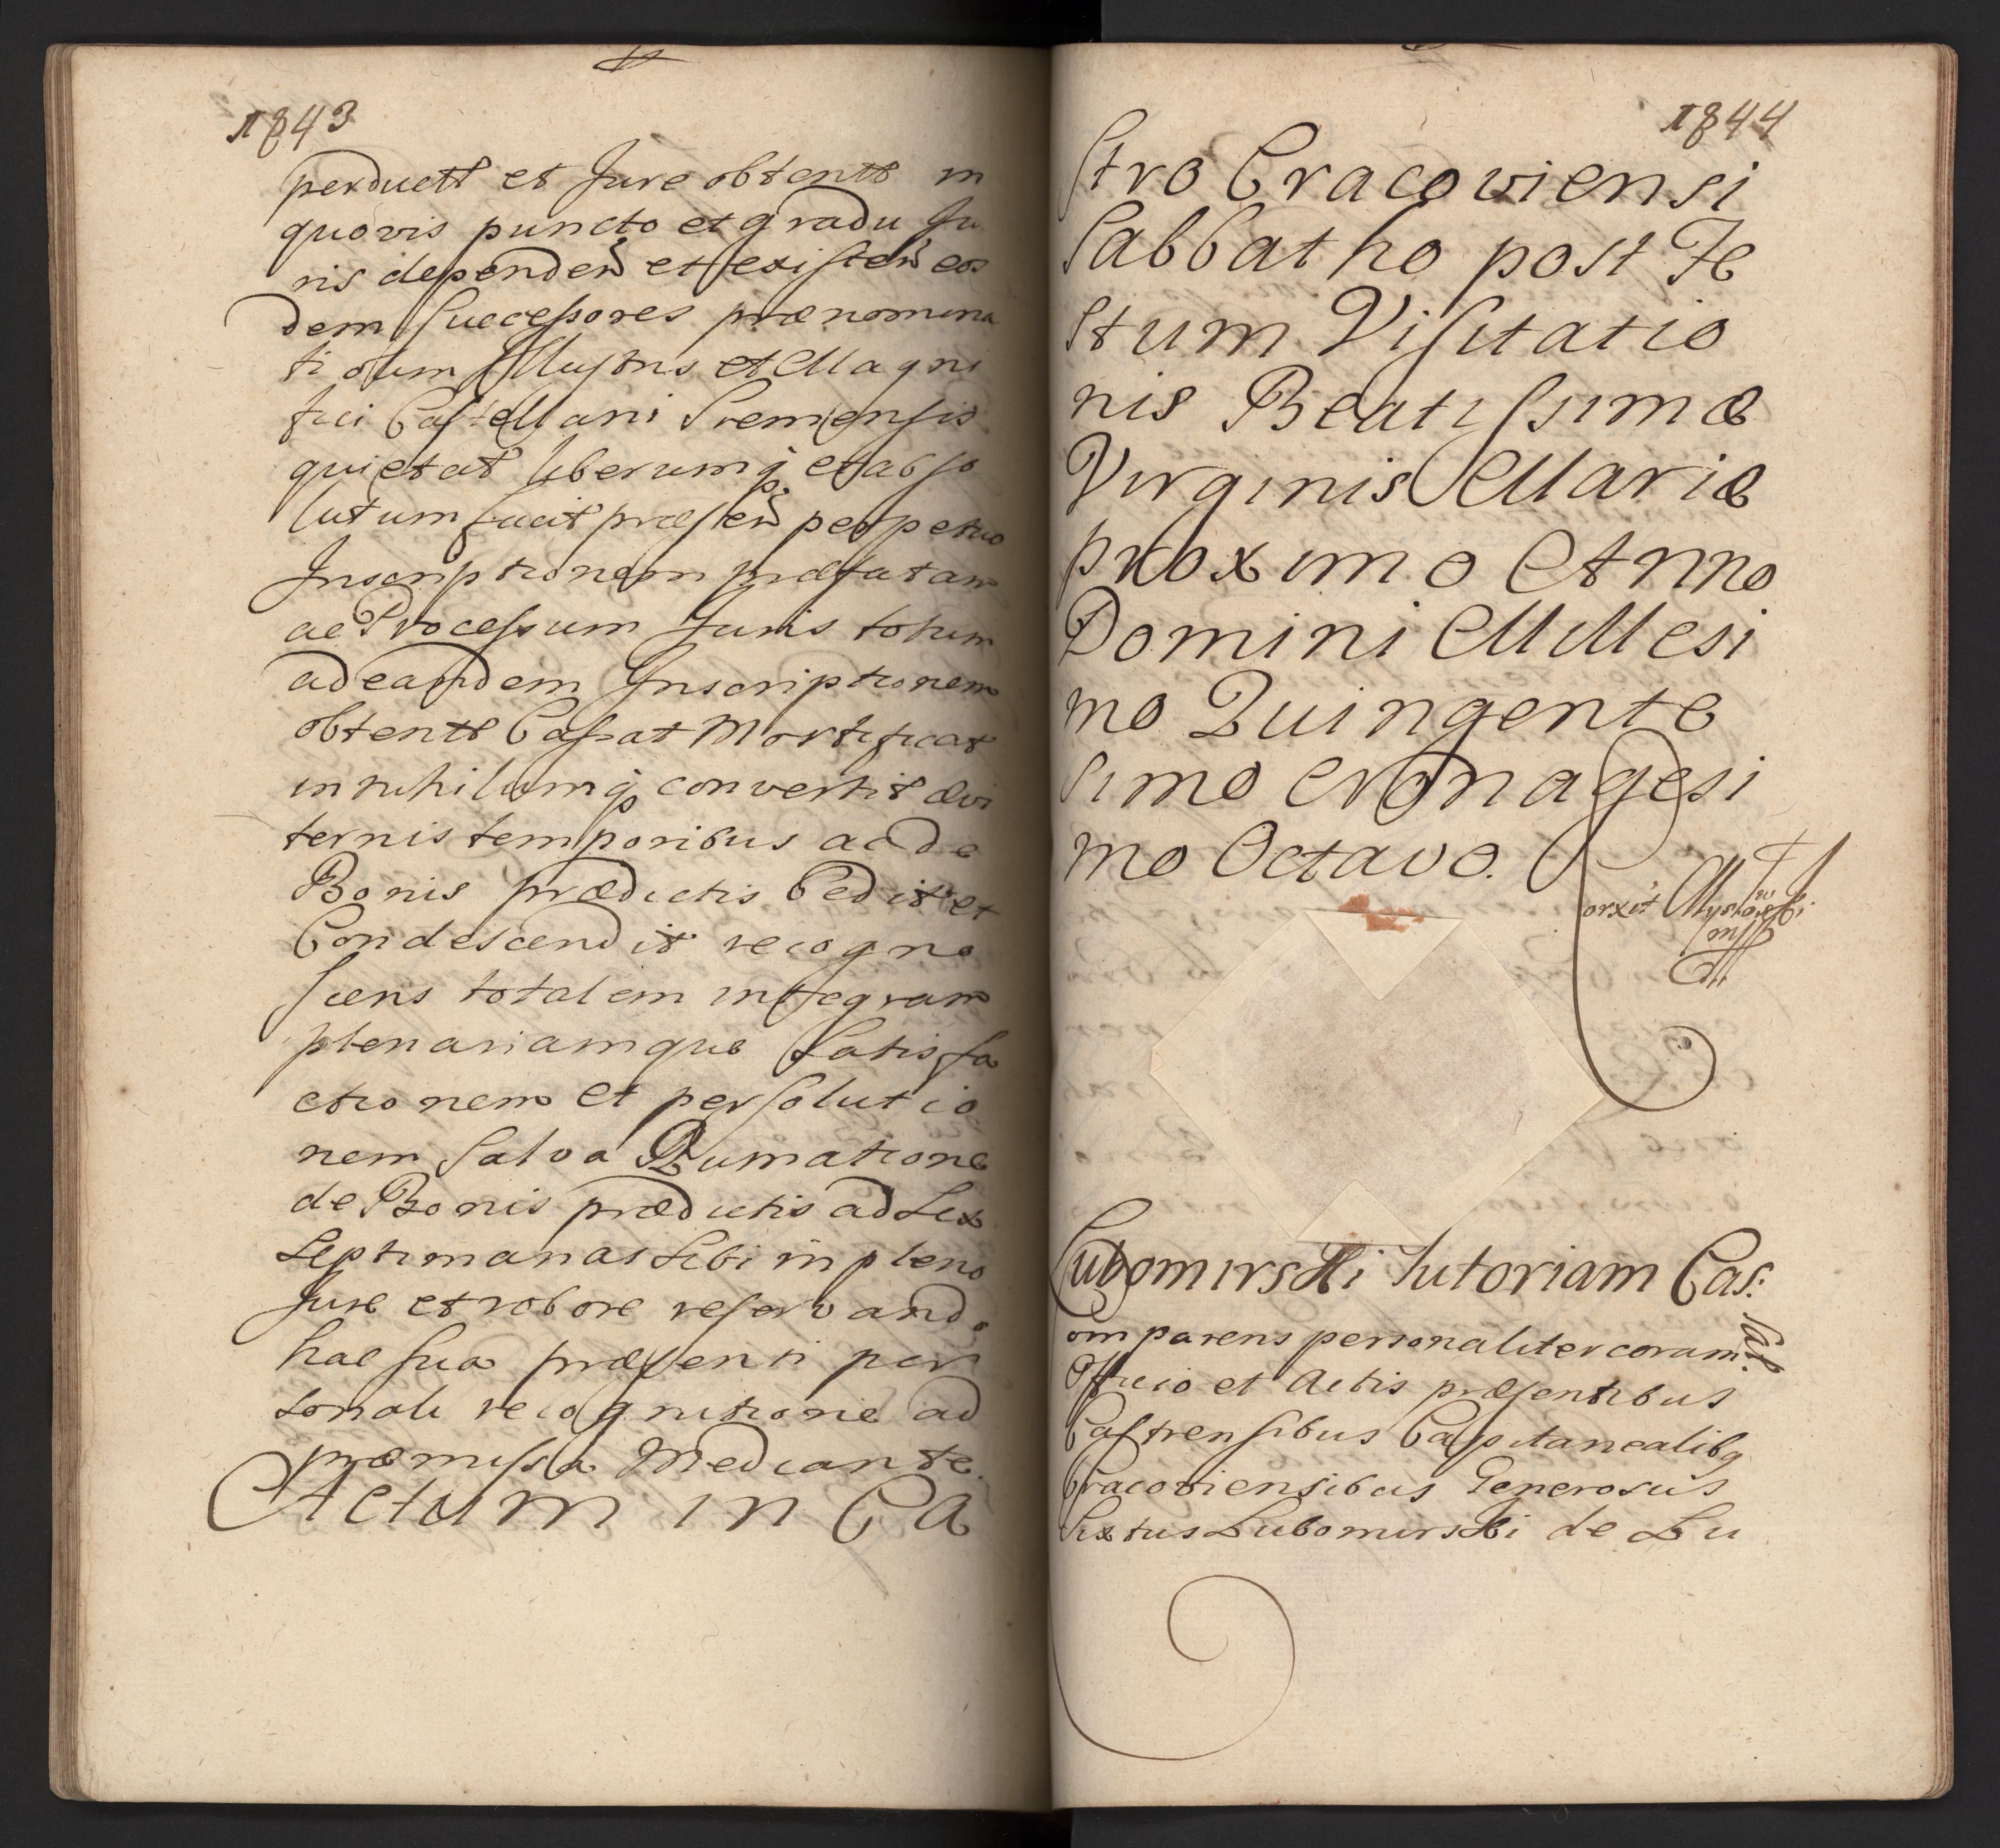 1843
perductt et Jure obtentt in
quovis puncto et gradu Ju
ris dependen et existen eos
dem Successores prænomina
ti olim Illustris et Magni
fici Castellani Premensis
quietat liberumq et abso
lutum facit præsen perpetuo
Inscriptionem præfatam
ac Processum Juris totum
ad eandem Inscriptionem
obtentt Cassat Mortificat
in nihilumq convertit ævi
ternis temporibus ac de
Bonis prædictis Cedit et
Condescendit recogno
scens totalem integram
plenariamque Satisfa
ctionem et persolutio
nem Salva Rumatione
de Bonis prædictis ad Sex
Septimanas Sibi in pleno
Jure et robore reservando
hac sua præsenti per
sonali recognitione ad
præmissa Mediante.
Actum in Ca
1844
stro Cracoviensi
Sabbatho post Fe
stum Visitatio
nis Beatissimæ
Virginis Mariæ
proximo Anno
Domini Millesi
mo Quingente
simo Nonagesi
mo Octavo.
Lubomirski Tutoriam Cas:
sat
omparens personaliter coram
Officio et Actis præsentibus
Castrensibus Capitanealibq
Cracoviensibus Generosus
Sixtus Lubomirski de Lu